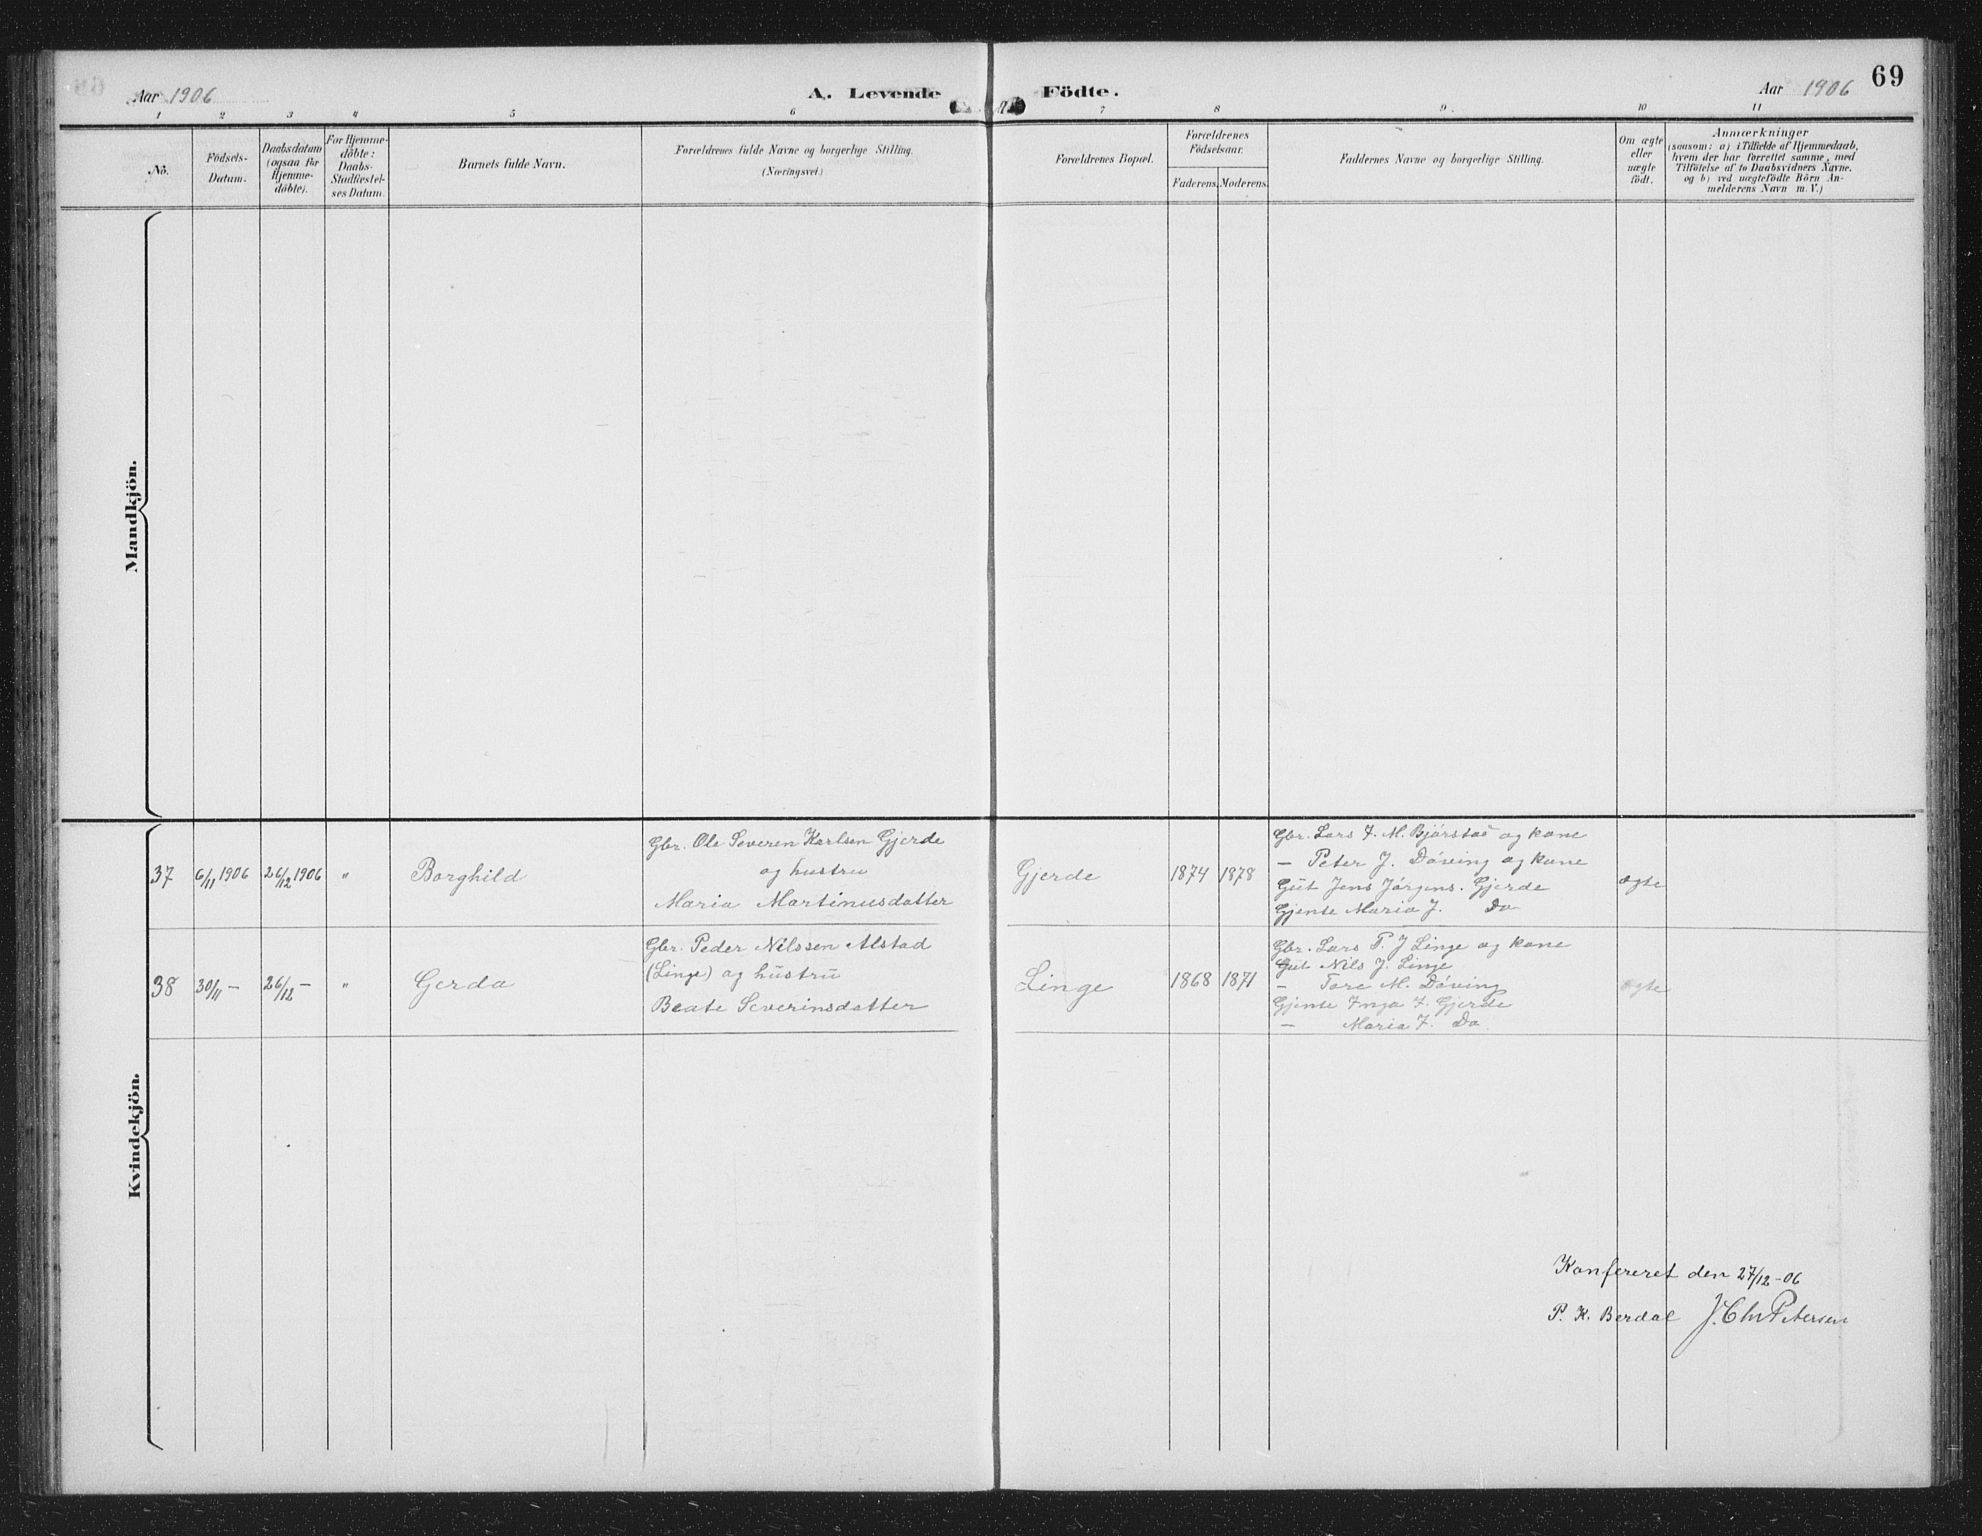 69
Aar 1906
A. Levende Födte.
Aar 1906
1 2 3 4 5 6 7 8 9 10 11
No.
Födsels-
Datum.
Daabsdatum
(ogsaa för
Hjemme-
döbte).
For Hjemme-
döbte:
Daabs-
Stadfæstel-
ses Datum.
Barnets fulde Navn.
Forældrenes fulde Navne og borgerlige Stilling.
(Næringsvei.)
Forældrenes Bopæl.
Forældrenes
Födselsaar.
Faderens. Moderens.
Faddernes Navne og borgerlige Stilling.
Om ægte
eller
uægte
födt.
Anmærkninger
(saasom: a) i Tilfælde af Hjemmedaab,
hvem der har forrettet samme, med
Tilföielse af to Daabsvidners Navne,
og b) ved uægtefödte Börn An-
melderens Navn m. V.)
Mandkjön.
Kvindekjön.
37 6/11 1906 26/12 1906 " Borghild
Gbr. Ole Severen Karlsen Gjerde
og hustru
Maria Martinusdatter
Gjerde 1874 1878
Gbr. Lars J. M. Bjørstad og kone
— Peter J. Døving og kone
Gut Jens Jørgens. Gjerde
Gjente Maria J. Do
ægte
38 30/11 — 26/12 — " Gerda
Gbr. Peder Nilssen Alstad
(Linge) og hustru
Beate Severinsdatter
Linge 1868 1871
Gbr. Lars P. J Linge og kone
Gut Nils J. Linge
— Tore M. Døving
Gjente Inga J. Gjerde
— Maria J. Do
ægte
Konfereret den 27/12-06
P. K. Berdal J. Chr Petersen